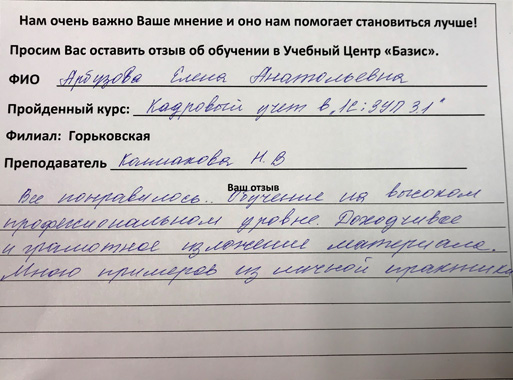 Нам очень важно Ваше мнение и оно нам помогает становиться лучше!
Просим Вас оставить отзыв об обучении в Учебный Центр «Базис».
ФИО Арбузова Елена Анатольевна
Пройденный курс: Кадровый учет в "1С: ЗУП 3.1"
Филиал: Горьковская
Преподаватель Колмакова Н.В
Ваш отзыв
Все понравилось.. Обучение на высоком
профессиональном уровне. Доходчивое
и грамотное изложение материала.
Много примеров из личной практики